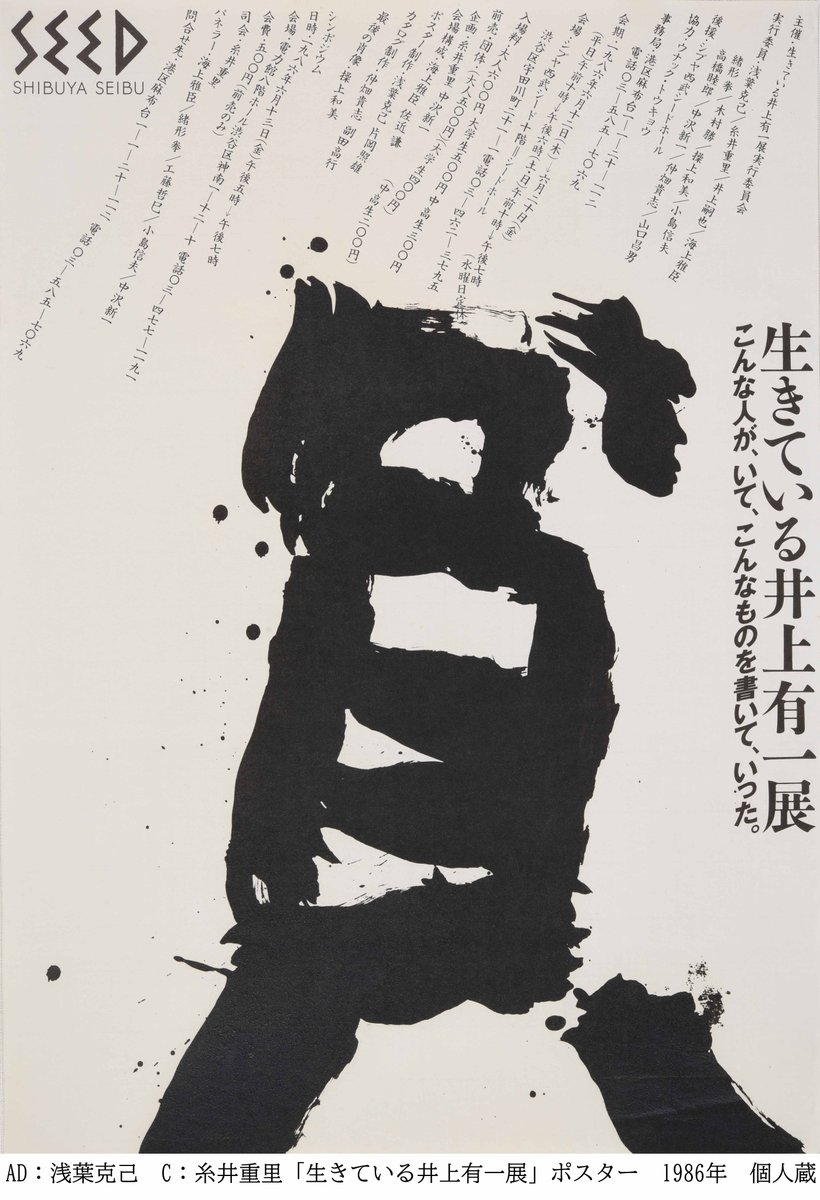 SEED
SHIBUYA SEIBU
生きている井上有一展
こんな人が、いて、こんなものを書いて、いった。
主催・生きている井上有一展実行委員会
実行委員 浅葉克己/糸井重里/井上嗣也/海上雅臣
緒形拳/木村勝/操上和美/小島信夫
高橋睦郎/中沢新一/仲畑貴志/山口昌男
後援・シブヤ西武シードホール
協力・ウナックトウキョウ
事務局・港区麻布台一—一—二十—一一二
電話〇三—五八五—七〇六九
会期・一九八六年六月十二日(木)→六月二十日(金)
(平日)午前十時→午後六時(土・日)午前十時→午後七時
会場・シブヤ西武シード十階—シードホール
渋谷区宇田川町二十一—一 電話〇三—四六二—三七九五
(水曜日定休)
入場料 大人六〇〇円 大学生五〇〇円 中高生三〇〇円
前売・団体(大人五〇〇円 大学生四〇〇円 中高生二〇〇円)
企画・糸井重里 中沢新一
会場構成・海上雅臣 佐近謙
ポスター制作 浅葉克己 片岡照雄
カタログ制作 仲畑貴志 副田高行
最後の肖像 操上和美
シンポジウム
日時・一九八六年六月十三日(金)午後五時→午後七時
会場・電力館八階ホール 渋谷区神南一—十二—十 電話〇三—四七七—一一九一
会費・五〇〇円(前売のみ)
司会・糸井重里
パネラー・海上雅臣/緒形拳/工藤哲巳/小島信夫/中沢新一
問合せ先・港区麻布台一—一—二十—一一二 電話〇三—五八五—七〇六九
AD：浅葉克己 C：糸井重里「生きている井上有一展」ポスター 1986年 個人蔵